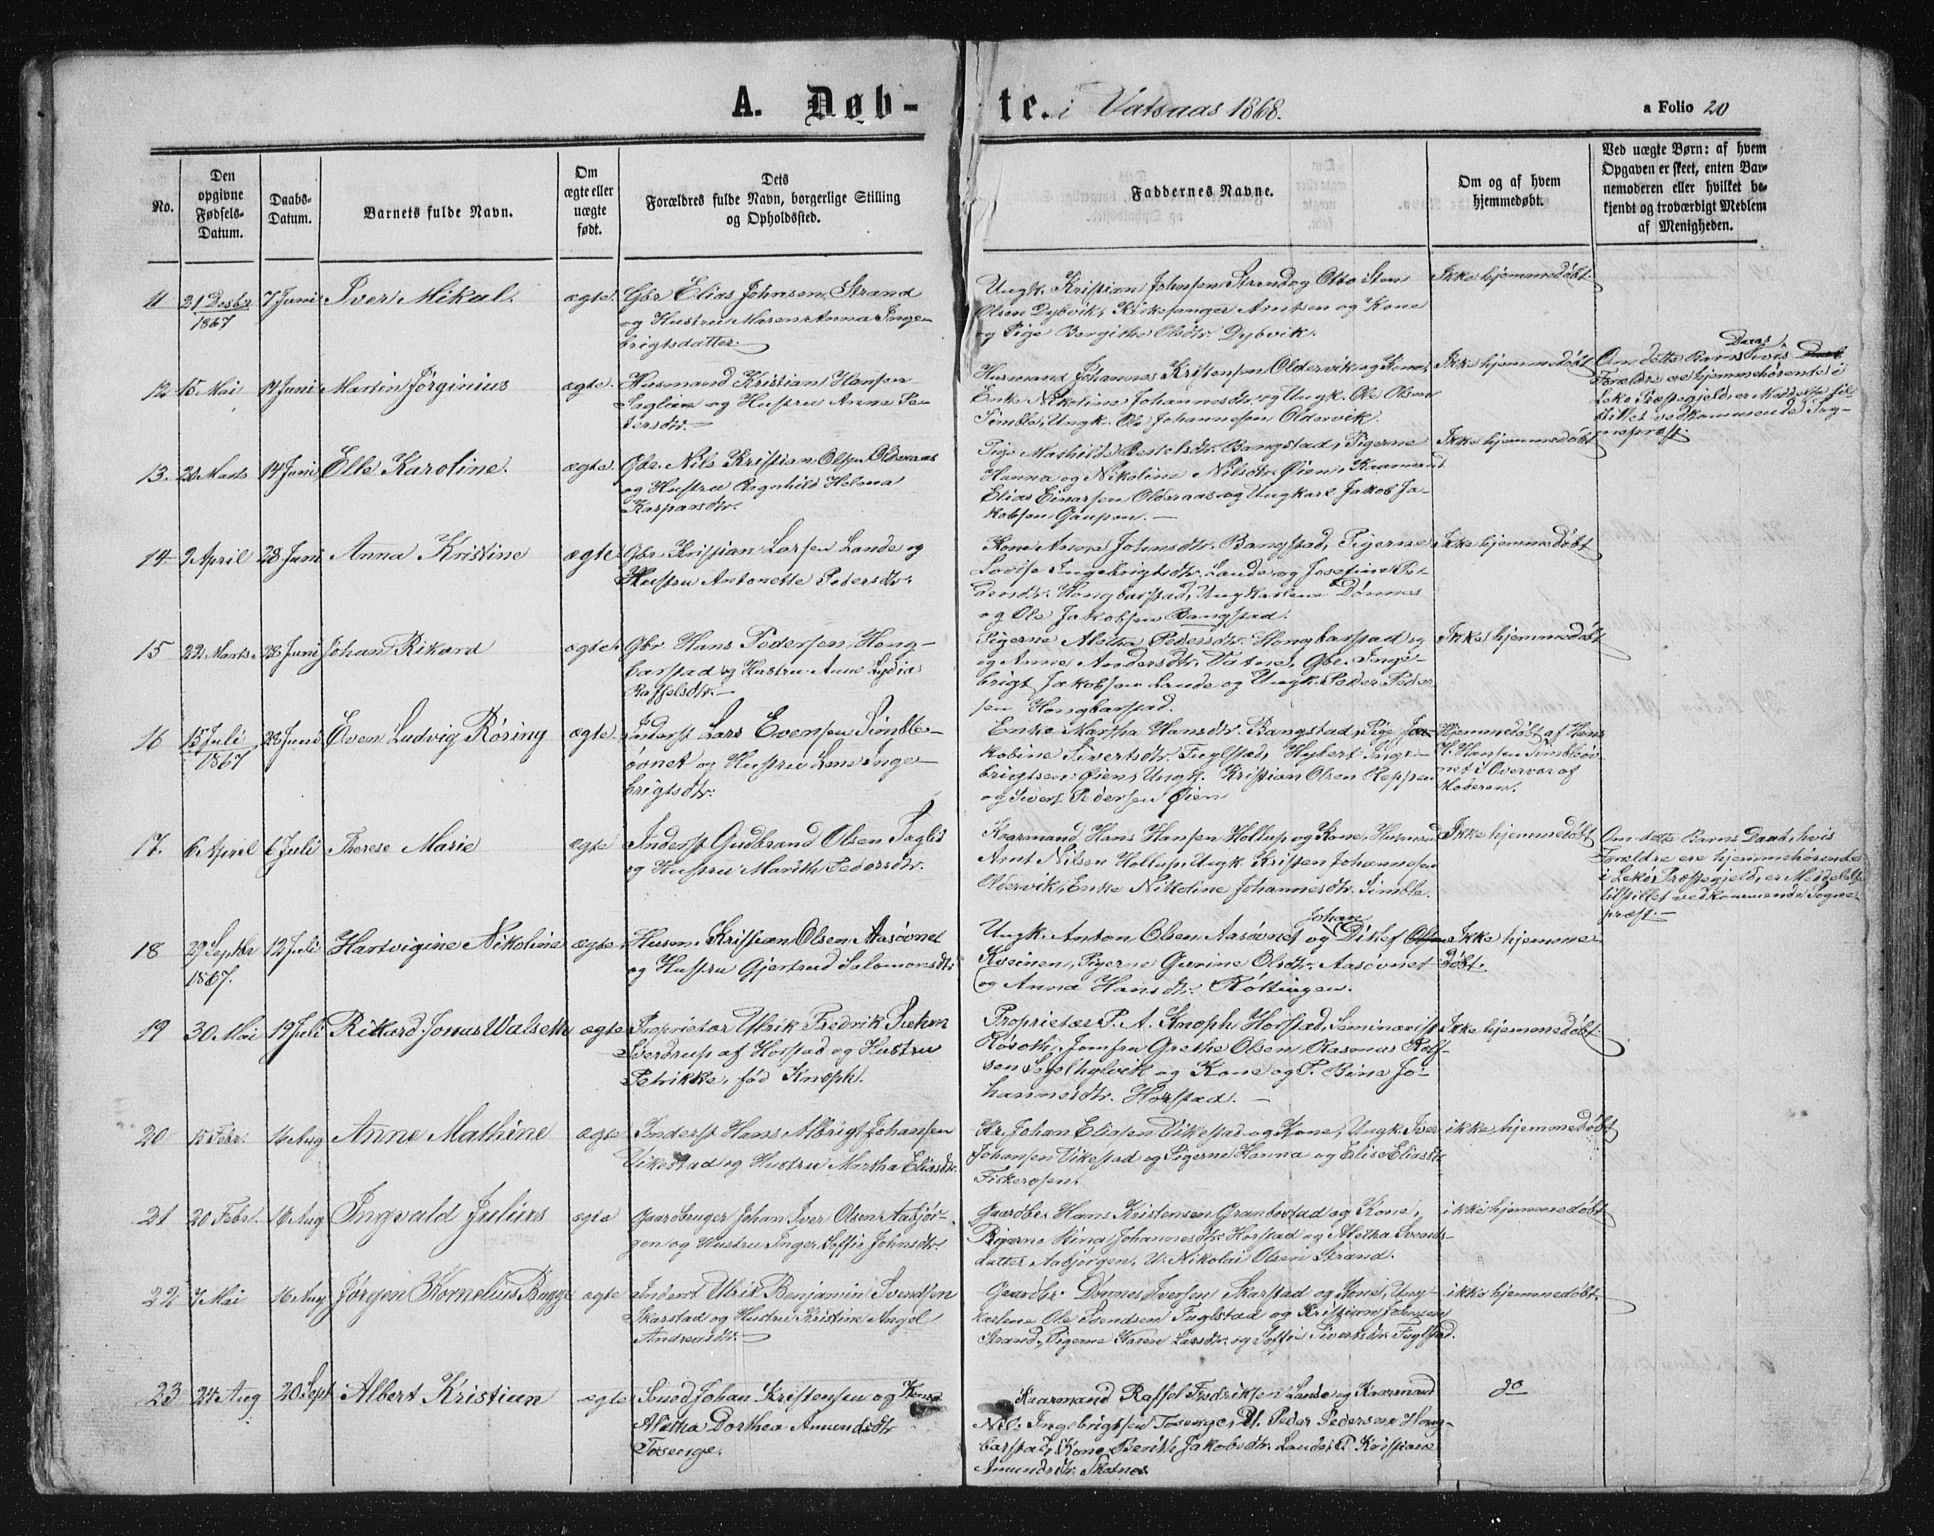 A. Døb-te. i Vatsaas 1868.
a Folio 20
No.
Den opgivne Fødsels-Datum.
Daabs-Datum.
Barnets fulde Navn.
Om ægte eller uægte født.
Dets Forældres fulde Navn, borgerlige Stilling og Opholdssted.
Faddernes Navne.
Om og af hvem hjemmedøbt.
Ved uægte Børn: af hvem Opgaven er skeet, enten Barnemoderen eller hvilket bekjendt og troværdigt Medlem af Menigheden.
11 21 Desbr 1867 7 Juni Iver Mikal. ægte. Gbr Elias Johnsen Strand
og Hustru Maren Anna Inge-
brigtsdatter.
Ungk. Kristian Johnsen Strand og Otto Sten
Olsen Dybvik, Kirkesanger Arntsen og Kone
og Pige Bergithe Olsdtr. Dybvik.
Ikke hjemmedøbt
12 15 Mai 7 Juni Martin Jørginius ægte. Husmand Kristian Hansen
og Hustru Anne Pe-
dersdtr.
Husmand Johannes Kristensen Oldervik og Kone,
Enke Nikoline Johannesdtr. og Ungk. Ole Olsen
Simle, Ungk. Ole Johannesen Oldervik.
Ikke hjemmedøbt
Om dette Barns Daab, hvis
Forældre ere hjemmehørende i
Leka Præstegjeld, er Meddelelse til-
stillet vedkommende Sog-
nepræst.
13. 28 Marts 14 Juni Elle Karoline. ægte. Gbr. Nils Kristian Olsen Oldsraas
og Hustru Ragnhild Helena
Kaspersdtr.
Pige Mathilde Bertelsdtr. Bangstad, Pigerne
Hanna og Nikoline Nilsdtr. Øien, Kaarmand
Elias Einarsen Oldsraas og Ungkarl Jakob Ja-
kobsen Gaupen.
Ikke hjemmedøbt
14 2 April 28 Juni Anna Kristine ægte Gbr. Kristian Larsen Lande og
Hustru Antonette Pedersdtr.
Kone Anne Johnsdtr. Bangstad, Pigerne
Lovise Ingebrigtsdtr. Lande og Josefine Pe-
dersdtr. Hongbarstad, Ungkarlene Dønnes
og Ole Jakobsen Bangstad.
Ikke hjemmedøbt
15 22 Marts. 28 Juni Johan Rikard ægte. Gbr. Hans Pedersen Hong-
barstad og Hustru Anne Lydia
Raffelsdtr.
Pigerne Aletha Pedersdtr. Hongbarstad og
og Anne Andersdtr. Vatne, Gbr. Inge-
brigt Jakobsen Lande og Ungk. Peder Peder-
sen Hongbarstad.
Ikke hjemmedøbt
16 15 Juli 1867 28 Juni Even Ludvig Røring ægte. Inderst Lars Evensen Simble-
øvnet og Hustru Lene Inge-
brigtsdtr.
Enke Martha Hansdtr. Bangstad, Pige Ja-
kobine Sivertsdtr. Fuglstad, Hybert Inge-
brigtsen Øien, Ungk. Kristian Olsen Reppen
og Sivert Pedersen Øien
Hjemmedøbt af Hans
H. Hansen Simbleøv-
net i Overvær af
Moderen.
17. 6 April 6 Juli Therese Marie ægte Inderst Gudbrand Olsen
og Hustru Marith Pedersdtr.
Kaarmand Hans Hansen Hollup og Kone, Husmand
Arnt Nilsen Hollup, Ungk. Kristen Johannesen
Oldervik, Enke Nikoline Johannesdtr. Simble.
Ikke hjemmedøbt
Om dette Barns Daab, hvis
Forældre ere hjemmehørende
i Lekø Præstegjeld, er Meddelelse
tilstillet vedkommende Sogne-
præst.
18 29 Septbr 1867. 12 Juli Hartvigine Nikoline ægte Husm. Kristian Olsen Aasøvnet
og Hustru Gjertrud Salomonsdtr.
Ungk. Anton Olsen Aasøvnet og Johan Ditlef Olsen
Kveinen, Pigerne Gurine Olsdtr. Aasøvnet
og Anna Hansdtr. Røttingen.
Ikke hjemme
døbt.
19 30 Mai 19 Juli Rikard Jonus Walseth ægte Proprietær Ulrik Fredrik Suhm
Sverdrup af Horstad og Hustru
Petrikke, fød Knoph.
Proprietær P. A. Knoph Horstad, Seminarist
Røsoth, Jomfru Grethe Olsen, Rasmus Rolf-
sen og Kone og P. Bine Jo-
hannesdtr. Horstad.
Ikke hjemmedøbt
20 15 Febr. 16 Aug Anne Mathine ægte Inderst Hans Albrigt Johansen
Vikestad og Hustru Martha Eliasdtr.
Kr. Johan Eliasen Vikestad og Kone, Ungk. Iver
Johansen Vikestad og Pigerne Hanna og Elise Eliasdtr
Fiskerosen.
ikke hjemmedøbt
21 20 Febr. 16 Aug Ingvald Julius ægte Gaardbruger Johan Iver Olsen Aasjør-
gen og Hustru Inger Soffie Johnsdtr.
Gaardbr. Hans Kristensen Granbostad og Kone,
Pigerne Stina Johannesdtr. Horstad og Aletha Svends-
datter Aasjørgen, U. Nikolai Olsen Strand.
ikke hjemmedøbt
22 7 Mai 16 Aug Jørgen Kornelius Bugge ægte Inderst Ulrik Benjamin Svendsen
Skarstad og Hustru Kristine Angel
Andreasdtr.
Gaardbr. Dønnes Iversen Skarstad og Kone, Ung-
karlene Ole Svendsen Fuglstad og Kristian Johnsen
Strand, Pigerne Karen Larsdtr. og Soffi Sivertsdtr. Fuglstad.
ikke hjemmedøbt
23 24 Aug 20 Sept Albert Kristian ægte Smed Johan Kristensen og Kone
Aletha Dorthea Amundsdtr
Tosenge.
Kaarmand Raffel Fredriksen Lande og Kaarmand
Nils Ingebrigtsen Tosenge, U. Peder Pedersen Hong-
barstad, Kone Berith Jakobsdtr. Lande, P. Kristiane
Amundsdtr. Skotnes
do